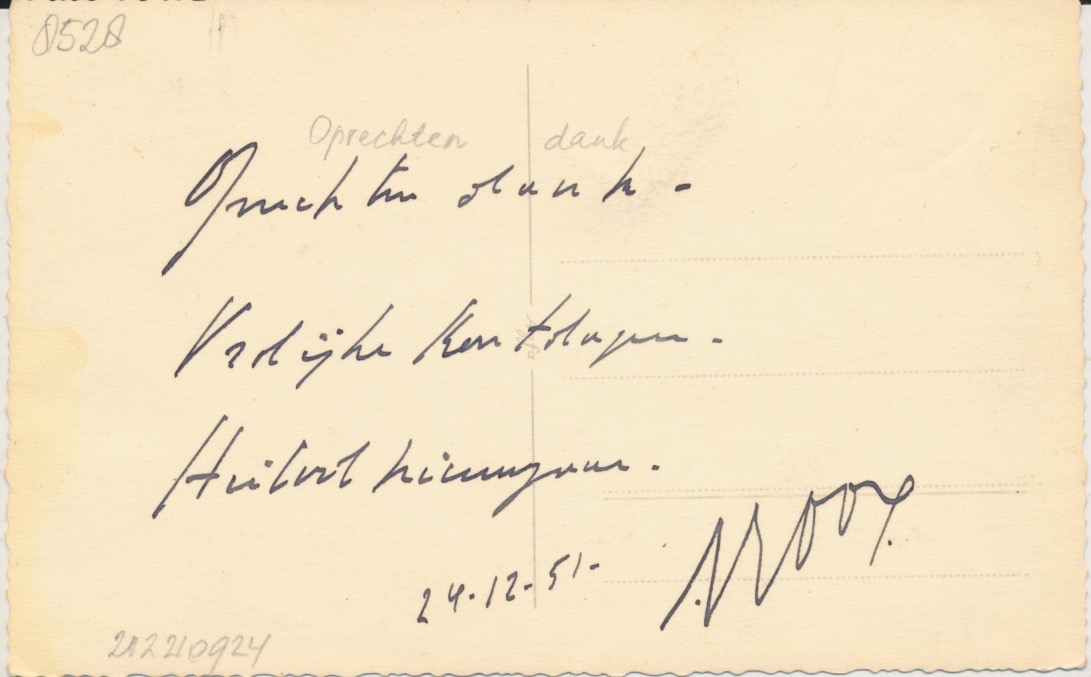 8528
Oprechten dank
Oprechten dank -
Vrolijke Kerstdagen.
Heilvol nieuwjaar.
24-12-51-
212210924